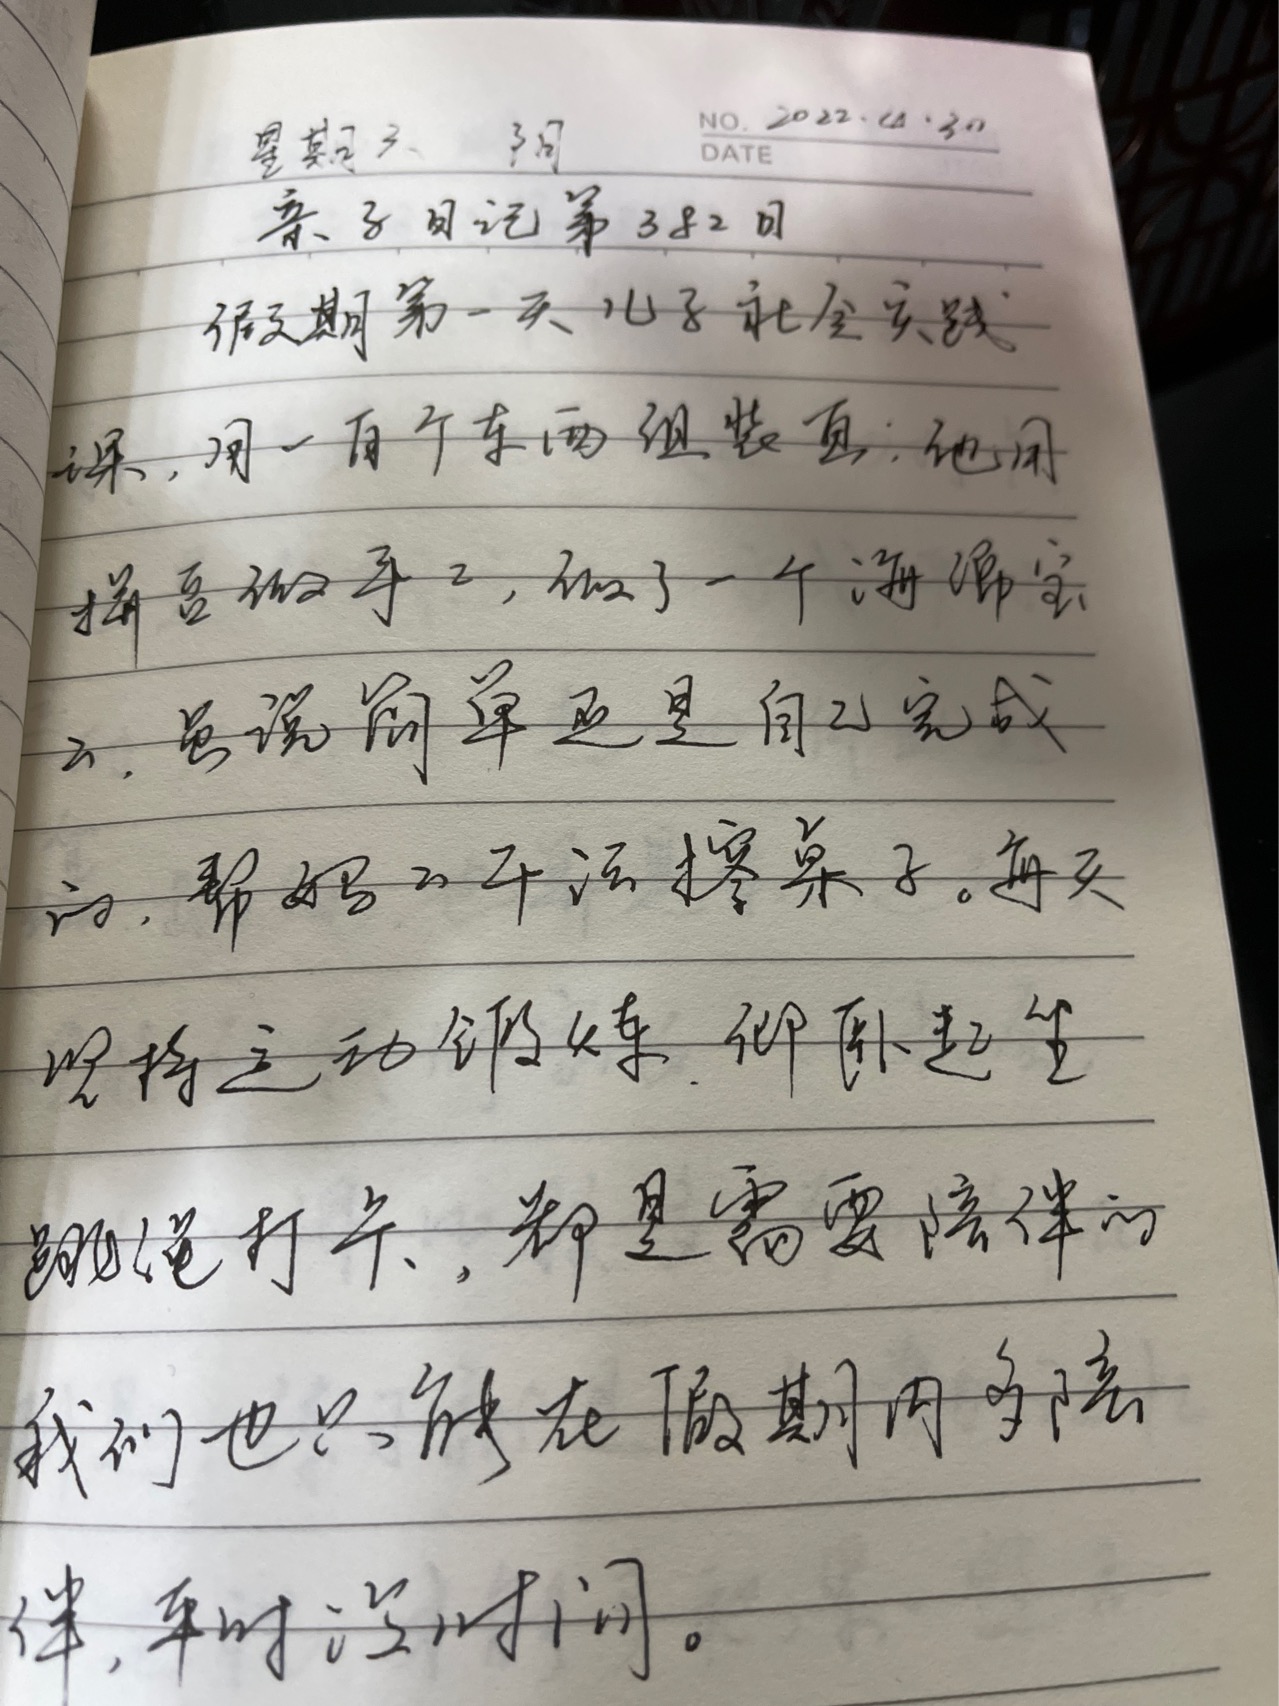 NO. 2022.4.30
DATE
星期六 阴
亲子日记第382日
假期第一天儿子社会实践
课,用一百个东西组装真,他用
拼豆做手工,做了一个海绵宝
宝,虽说简单还是自己完成
的,帮妈妈干活擦桌子。每天
坚持运动锻炼.仰卧起坐
跳绳打卡,都是需要陪伴的
我们也只能在假期内多陪
伴,平时没时间。